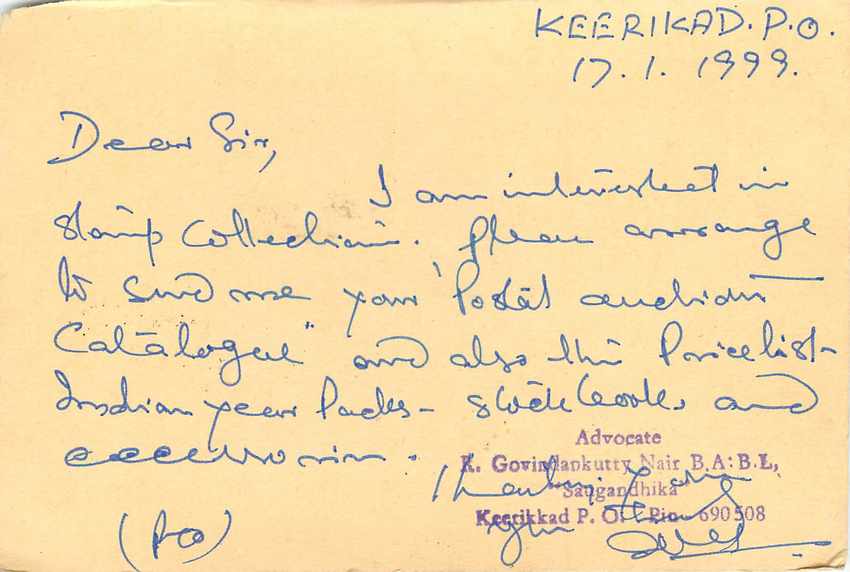 KEERIKAD. P.O.
17.1.1999.
Dear Sir,
I am interested in
stamp collection. Please arrange
to send me your 'Postal auction
Catalogue" and also the Pricelist-
Indian year Packs- stock books and
accessories.
Advocate
K. Govindankutty Nair B.A:B.L,
Thanking
"Saugandhika"
Keerikkad P. O. Pin- 690508
(PO)